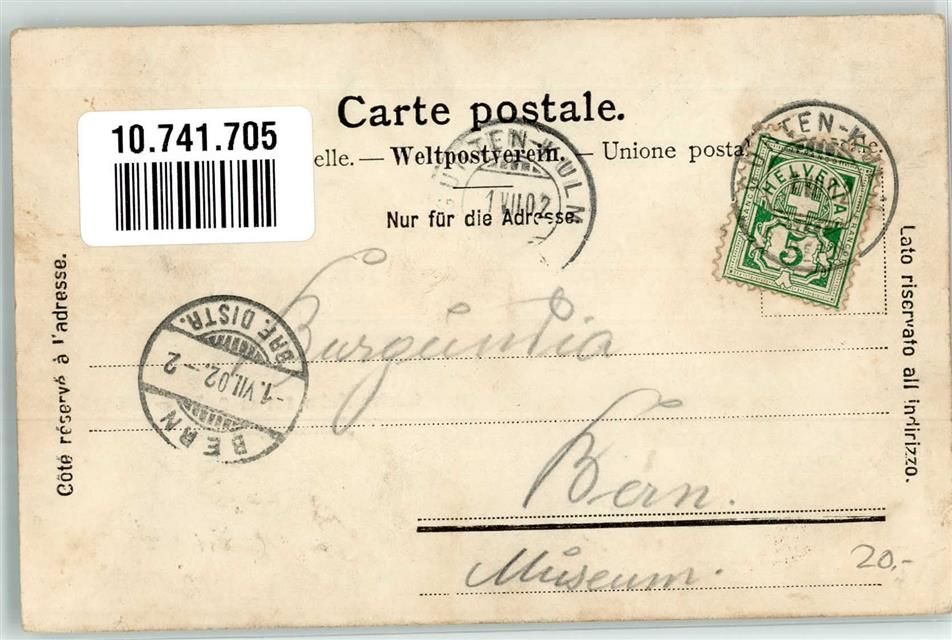 Carte postale.
10.741.705
elle. — Weltpostverein. — Unione posta
Nur für die Adresse.
UNTEN-KULM
1 VII.02
TEN-K
HELVETIA
5
Côté réservé à l'adresse.
Lato riservato all indirizzo.
BRF. DISTR.
-1.VII.02.-2
BERN
Burgundia
Bern.
Museum.
20,-